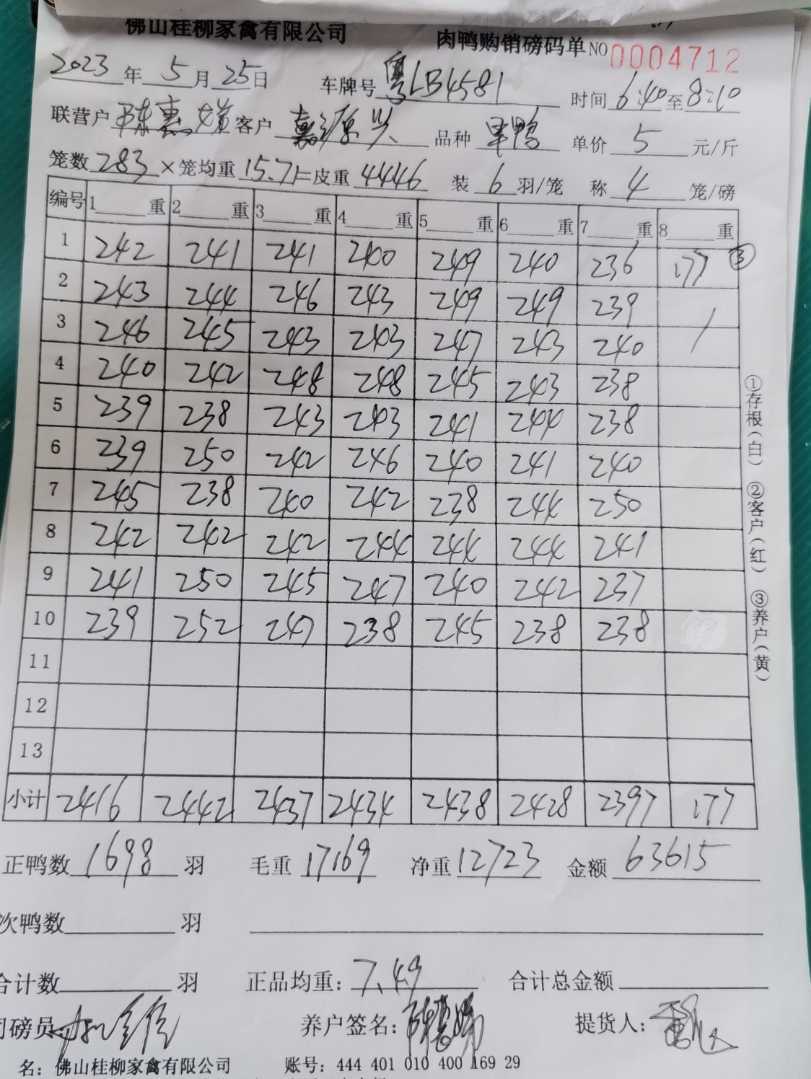 佛山桂柳家禽有限公司 肉鸭购销磅码单 NO 0004712
2023年5月25日 车牌号 粤LB4581 时间 6:40至8:10
联营户 陈惠 客户 嘉源兴 品种 单价 5 元/斤
笼数 283 ×笼均重 15.71=皮重 4446 装 6 羽/笼 称 4 笼/磅
编号 1 重 2 重 3 重 4 重 5 重 6 重 7 重 8 重
1 242 241 241 240 249 240 236 177 ③
2 243 244 246 243 249 249 239 /
3 246 245 243 243 247 243 240
4 240 242 248 248 245 243 238
5 239 238 243 243 241 244 238
6 239 250 242 246 240 241 240
7 245 238 240 242 238 244 250
8 242 242 242 244 244 244 241
9 241 250 245 247 240 242 237
10 239 252 247 238 245 238 238
11
12
13
小计 2416 2442 2437 2434 2438 2428 2397 177
①存根(白) ②客户(红) ③养户(黄)
正鸭数 1698 羽 毛重 17169 净重 12723 金额 63615
次鸭数 羽
合计数 羽 正品均重: 7.49 合计总金额
司磅员 养户签名: 提货人:
名: 佛山桂柳家禽有限公司 账号: 444 401 010 400 169 29